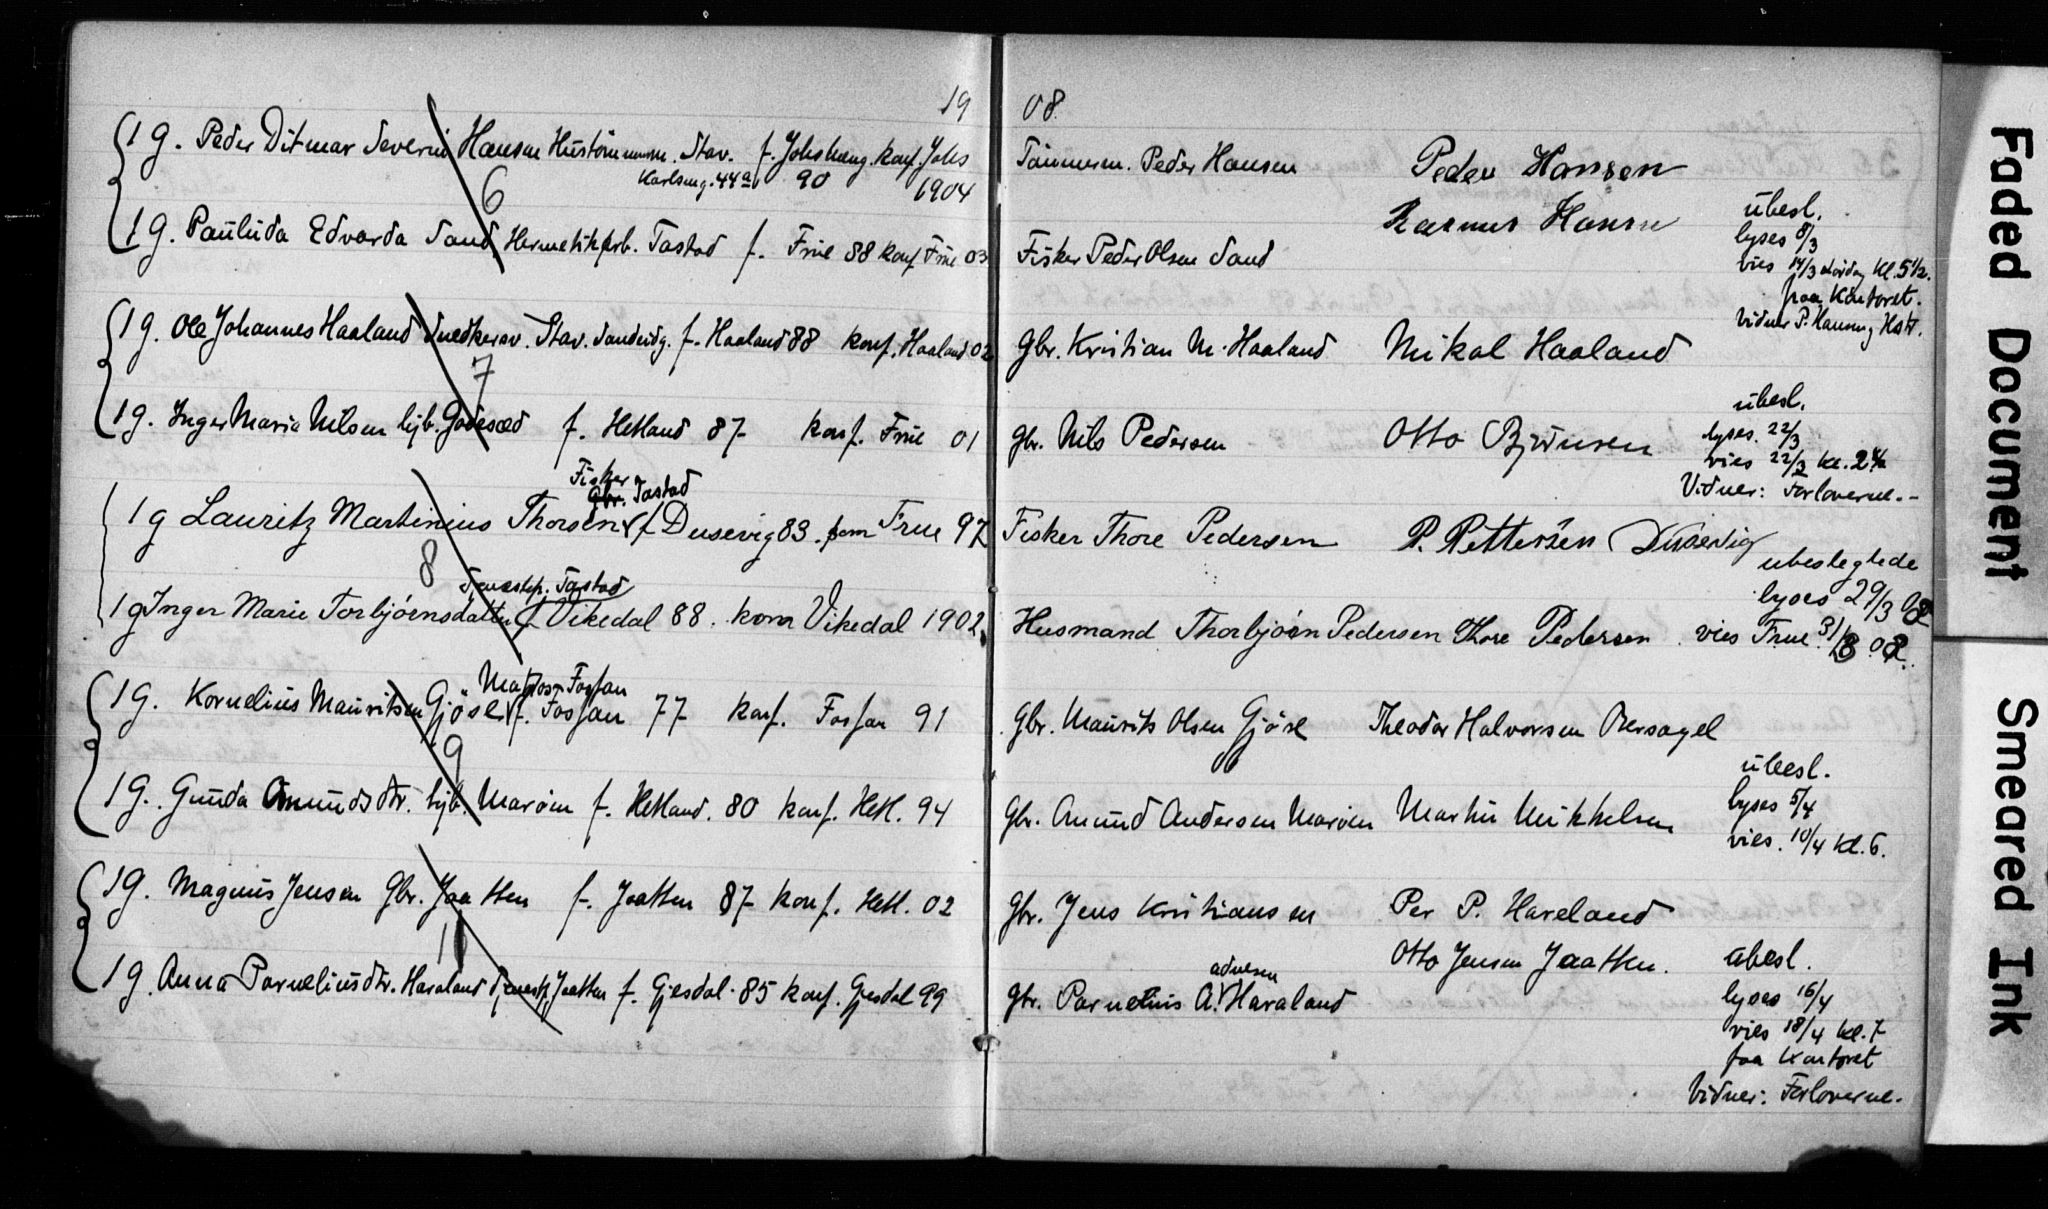 19 08.
1 g. Peder Ditmar Severin Hansen Hustömmerm. Stav. f. Johs. meng. konf. Johs Tömmerm. Peder Hansen Peder Hansen
6 Karlsmg. 44a 90 1904
Rasmus Hansen übesl.
1 g. Paulida Edvarda Sand Hermetikarb. Tastad f. Frue 88 konf Frue 03 Fisker Peder Olsen Sand lyses 8/3
vies 14/3 Lördag Kl. 5 1/2.
paa Kontoret.
Vidner P. Hansen og
1 g. Ole Johannes Haaland Snedkersv. Stav. Sandeidg. f. Haaland 88 konf. Haaland 02 Gbr. Kristian M. Haaland Mikal Haaland
7
übesl.
1 g. Inger Maria Nilsen hjb. Godesæd f. Hetland 87 konf. Frue 01 Gbr. Nils Pedersen Otto Bjørnsen lyses. 22/3
vies 22/3 Kl. 2 1/2
Fisker Vidner: Forloverne.-
Gbr. Tastad
1 g Lauritz Martinius Thorsen f Dusevig 83. kom Frue 97 Fisker Thore Pedersen P. Pettersen Dusevig
8 ubeslegtede
Tjenestep. Tastad lyses 29/3 08
1 g Inger Marie Torbjörnsdatter f Vikedal 88. kom Vikedal 1902. Husmand Thorbjörn Pedersen Thore Pedersen vies Frue 31/3 08.
Matros Fossan
1 g. Kornelius Mauritsen Gjöse f. Fossan 77 konf. Fossan 91 Gbr. Maurits Olsen Gjöse Theodor Halvorsen Aersagel
9 übesl.
1 g. Gunda Amunds dtr. hjb. Maröen f. Hetland. 80 konf. Hetl. 94 Gbr. Amund Andersen Maröen Martin Mikkelsen lyses 5/4
vies. 10/4 Kl. 6.
1 g. Magnus Jensen Gbr. Jaatten f. Jaatten 87 konf. Hetl. 02 Gbr. Jens Kristiansen Per P. Haveland
10 Otto Jensen Jaatten. übesl.
1 g. Anna Parneliusdtr. Haraland Tjenestp. Jaatten f. Gjesdal. 85 konf. Gjesdal 99 Gbr. Parnelius A. Haraland lyses 16/4
vies 18/4 Kl. 7
paa Kontoret
Vidner: Forloverne.
Faded Document
Smeared Ink